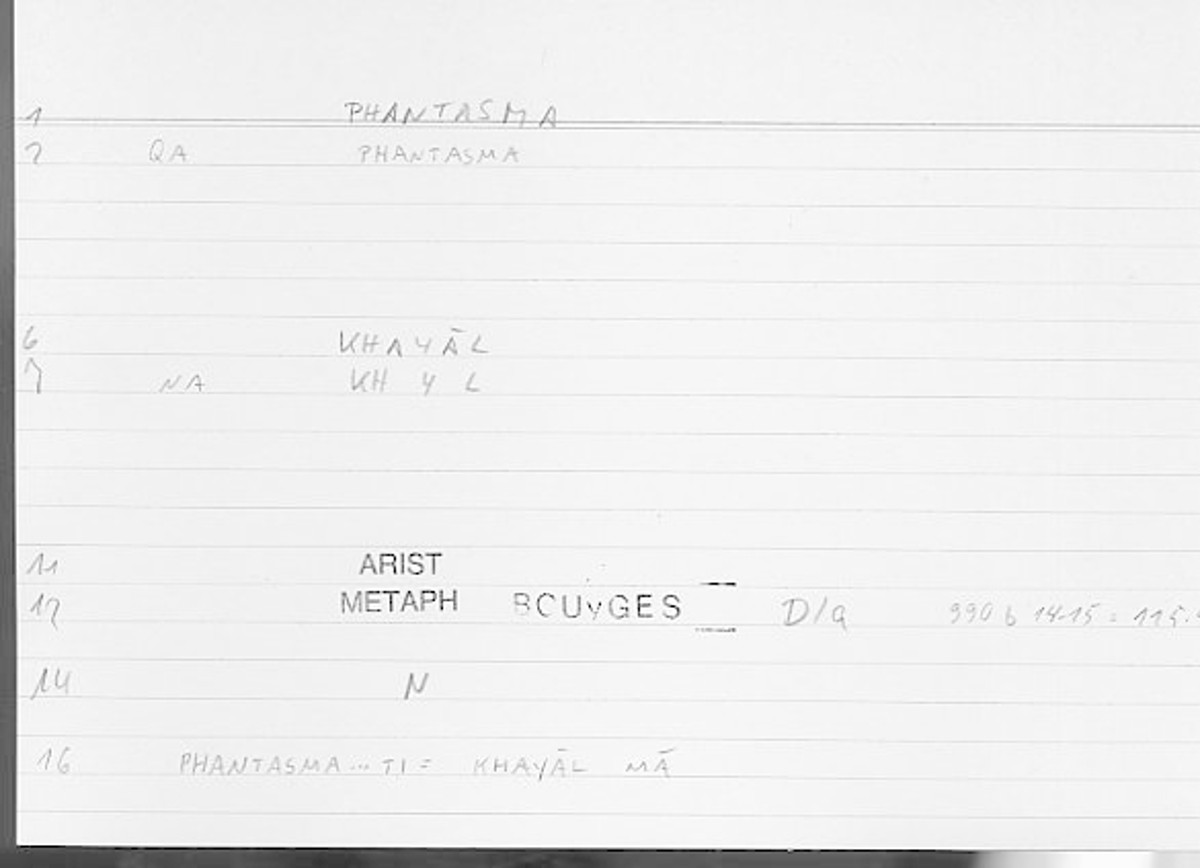 1 PHANTASMA
2 QA PHANTASMA
6 KHAYĀL
7 NA KH Y L
11 ARIST
12 METAPH BOUyGES D/a 990 b 14-15 =
14 N
16 PHANTASMA... TI = KHAYĀL MĀ